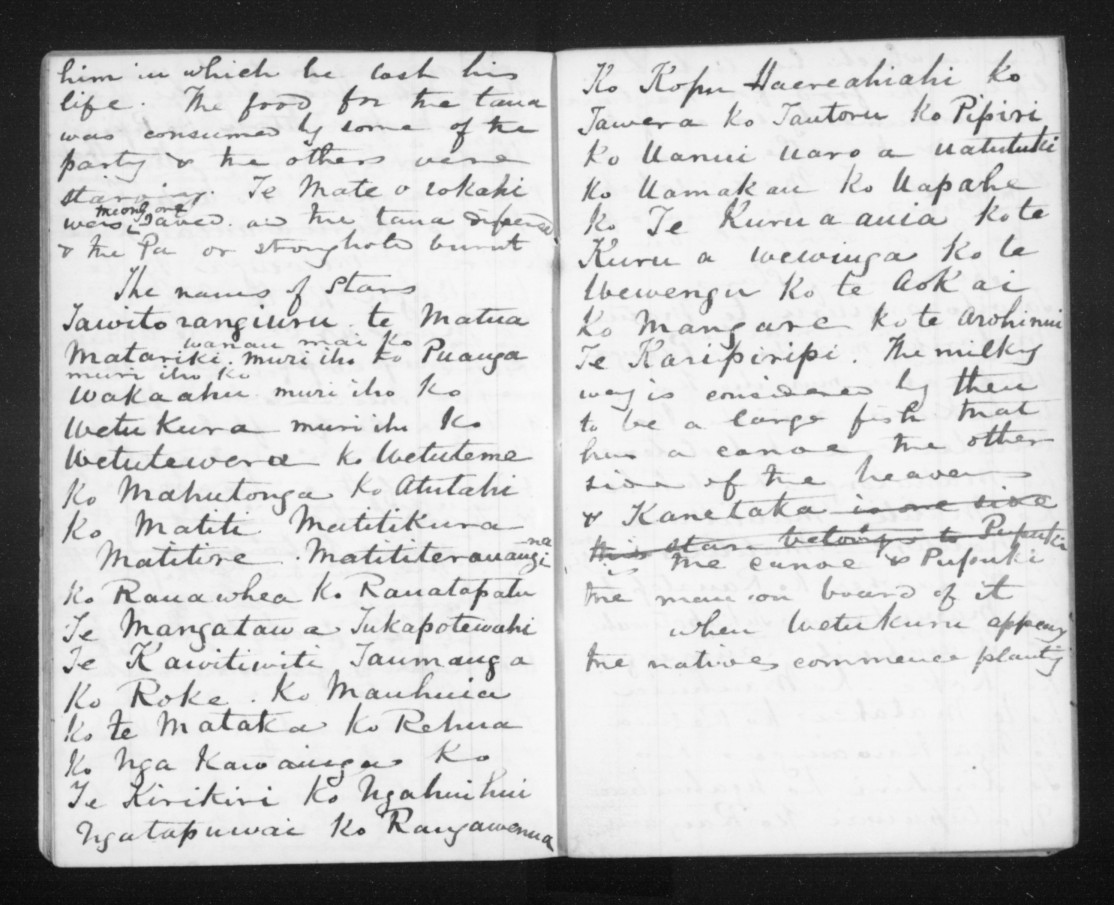 him in which he lost his
life. The food for the taua
was consumed by some of the
party & the others were
starving. Te Mate o rokahi
were saved and the taua
& the Pa or stronghold burnt
The names of Stars
Tawitorangiuru te Matua
wanau mai ko
Matariki. muri iho ko Puanga
muri iho ko
Wakaahu muri iho ko
Wetukura muri iho Ko
Wetutewera ko Wetuteme
Ko Mahutonga Ko Atutahi
Ko Matiti Matitikura
Matitire. Matititerauangina
Ko Rauawhea Ko Rauatapatu
Te Mangatawa Tukapotewahi
Te Kawitiwiti Taumanga
Ko Roke. Ko Mauhuia
Ko te Mataka Ko Rehua
Ko Nga Kawainga Ko
Te Kirikiri Ko Ngahuihui
Ngatapuwai Ko Rangawenua
Ko Kopu Haereahiahi Ko
Tawera Ko Tautoru Ko Pipiri
Ko Uanui Uaroa Uatutuki
Ko Uamakau Ko Uapahe
Ko Te Kuruaauia Ko te
Kuru a wewinga Ko te
Wewengu Ko te AoKai
Ko Mangare Ko te Arohinui
Te Karipiripi. The milky
way is considered by them
to be a large fish that
has a canoe the other
side of the heavens
& Kanetaka is one side
this stars belongs to Pipuki
is the canoe & Pufouki
the man on board of it
when Wetukuru appears
the natives commence planting